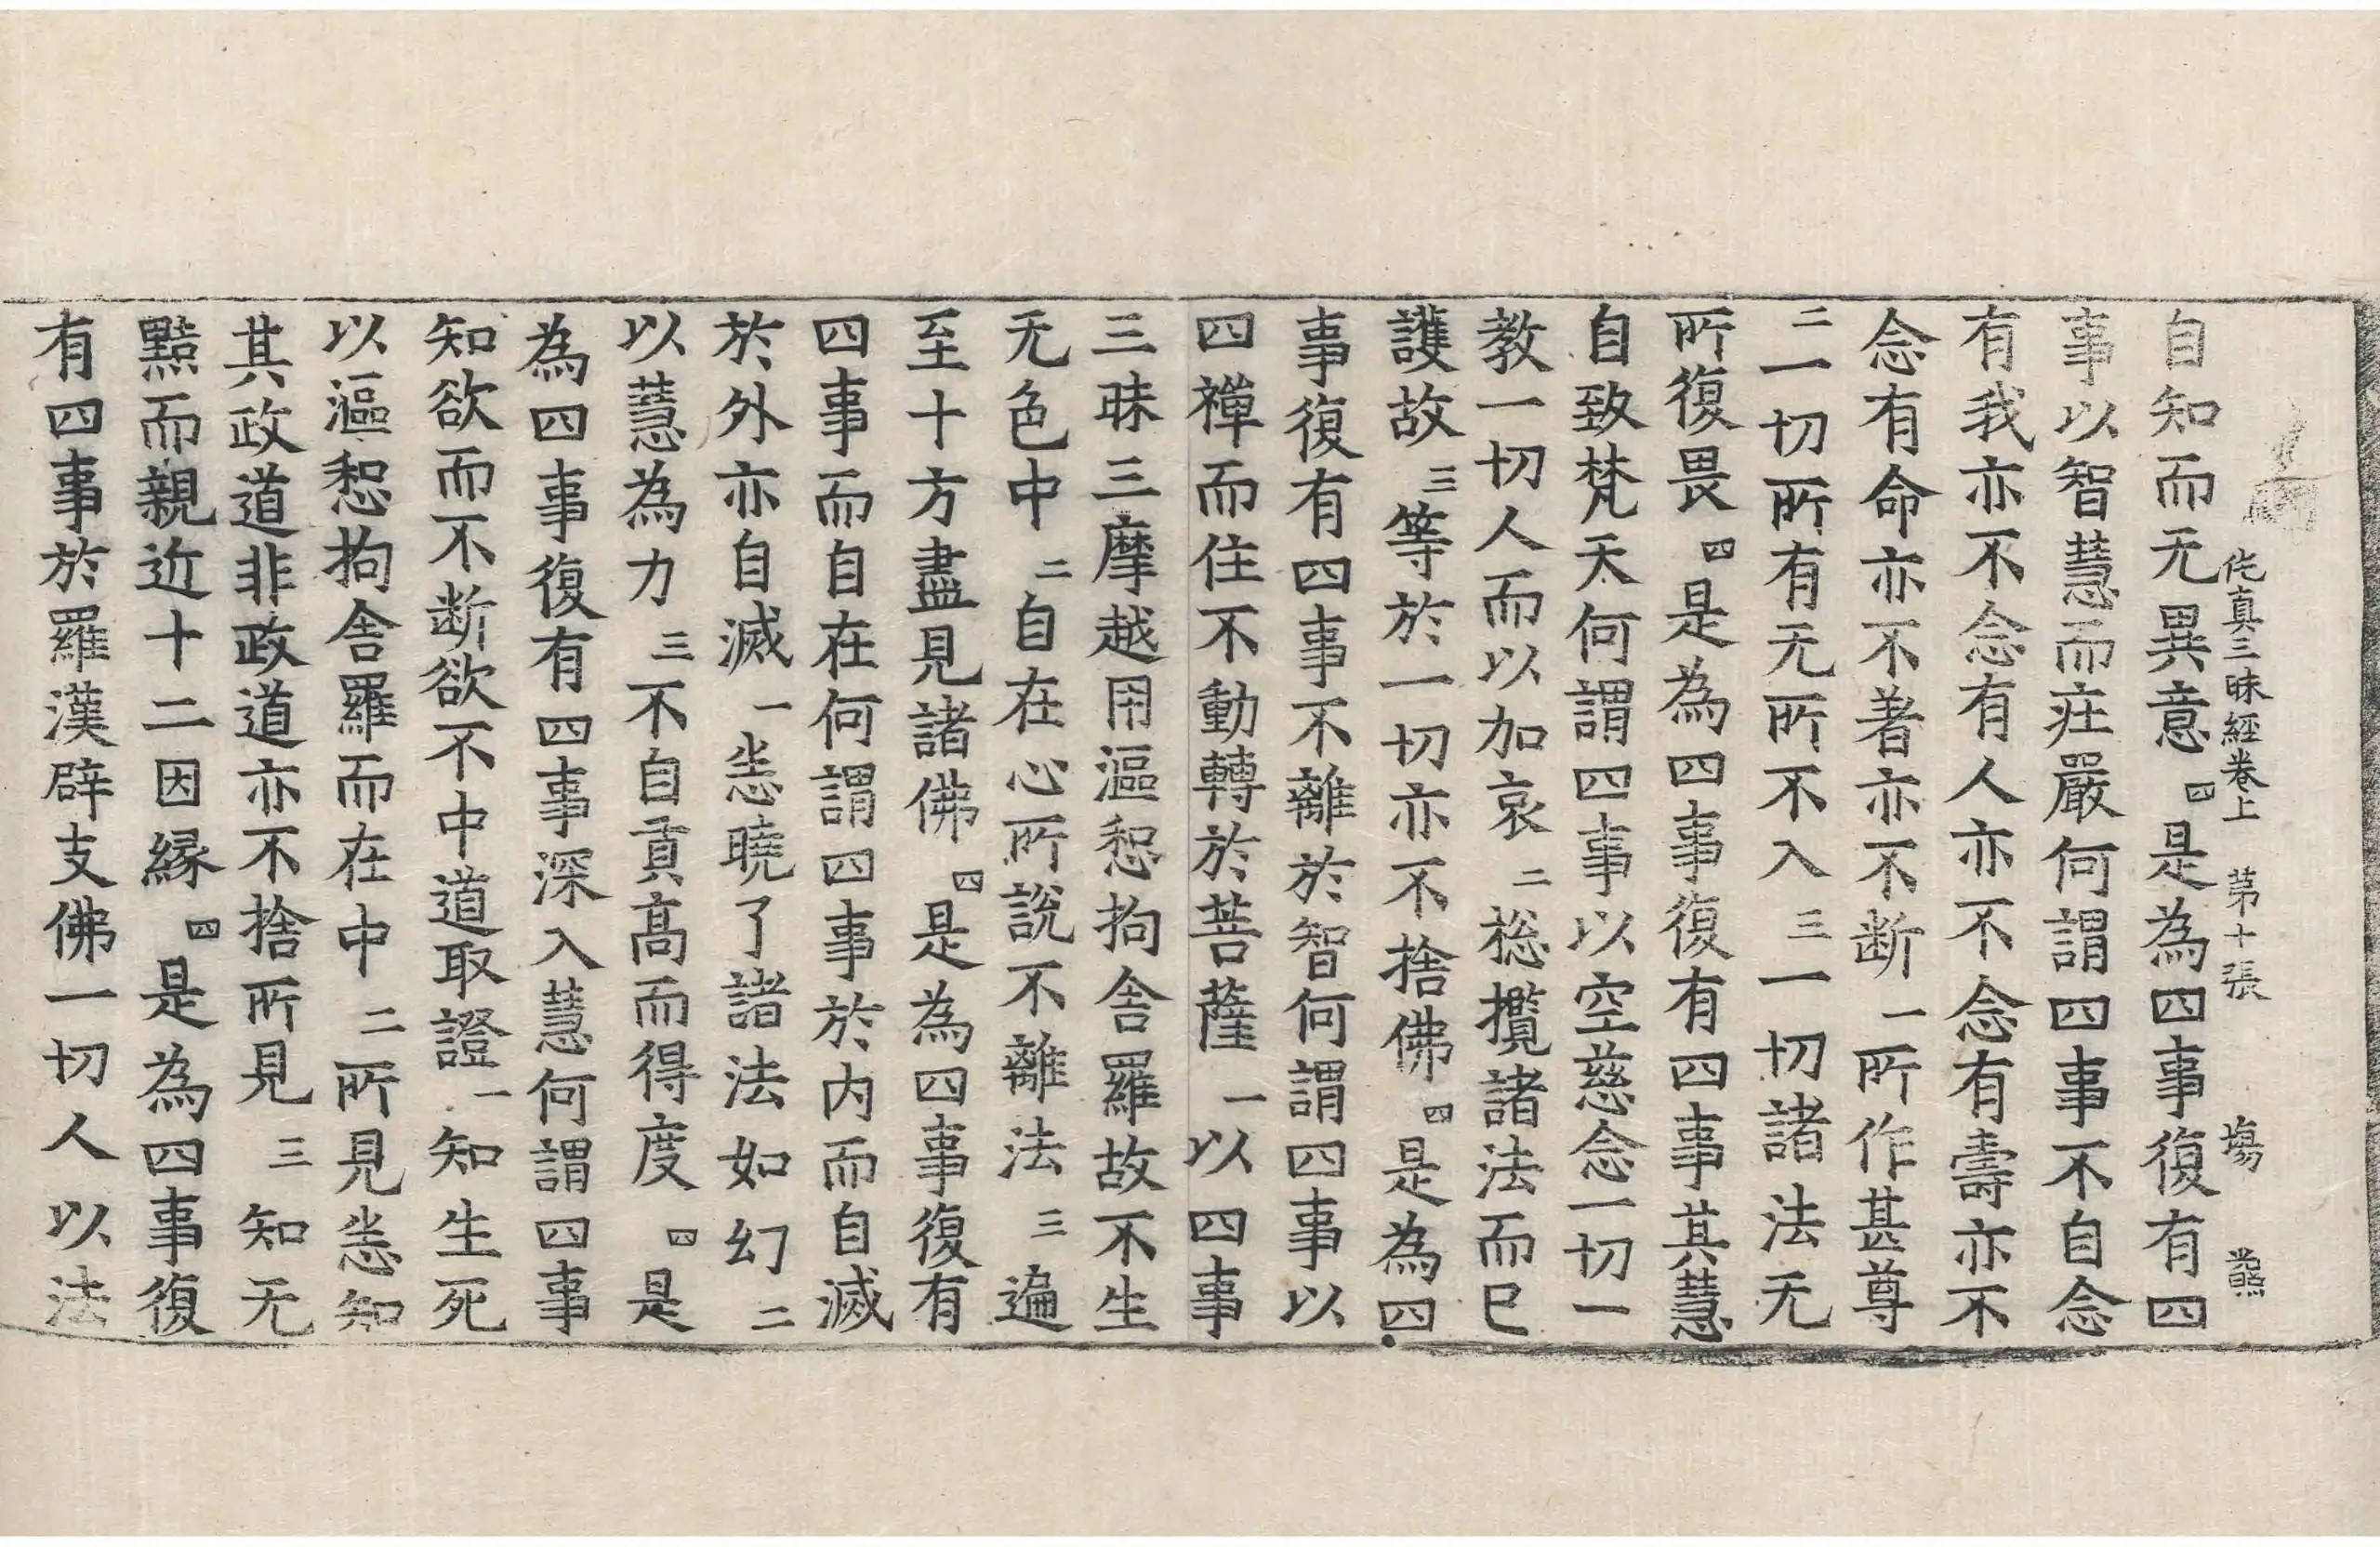 自知而无異意四是為四事復有四
伅真三昧經卷上　第十張　塲
事以智慧而疘嚴何謂四事不自念
有我亦不念有人亦不念有壽亦不
念有命亦不著亦不断一所作甚尊
二一切所有无所不入三一切諸法无
所復畏四是為四事復有四事其慧
自致梵天何謂四事以空慈念一切一
教一切人而以加哀二揔攬諸法而已
護故三等於一切亦不捨佛四是為四
事復有四事不離於智何謂四事以
四禪而住不動轉於菩薩一以四事
三昧三摩越用漚惒拘舍羅故不生
无色中二自在心所說不離法三遍
至十方盡見諸佛四是為四事復有
四事而自在何謂四事於内而自滅
於外亦自滅一悉曉了諸法如幻二
以慧為力三不自貢高而得度四是
為四事復有四事深入慧何謂四事
知欲而不断欲不中道取證一知生死
以漚惒拘舍羅而在中二所見悉知
其政道非政道亦不捨所見三知无
黠而親近十二因縁四是為四事復
有四事於羅漢辟支佛一切人以法